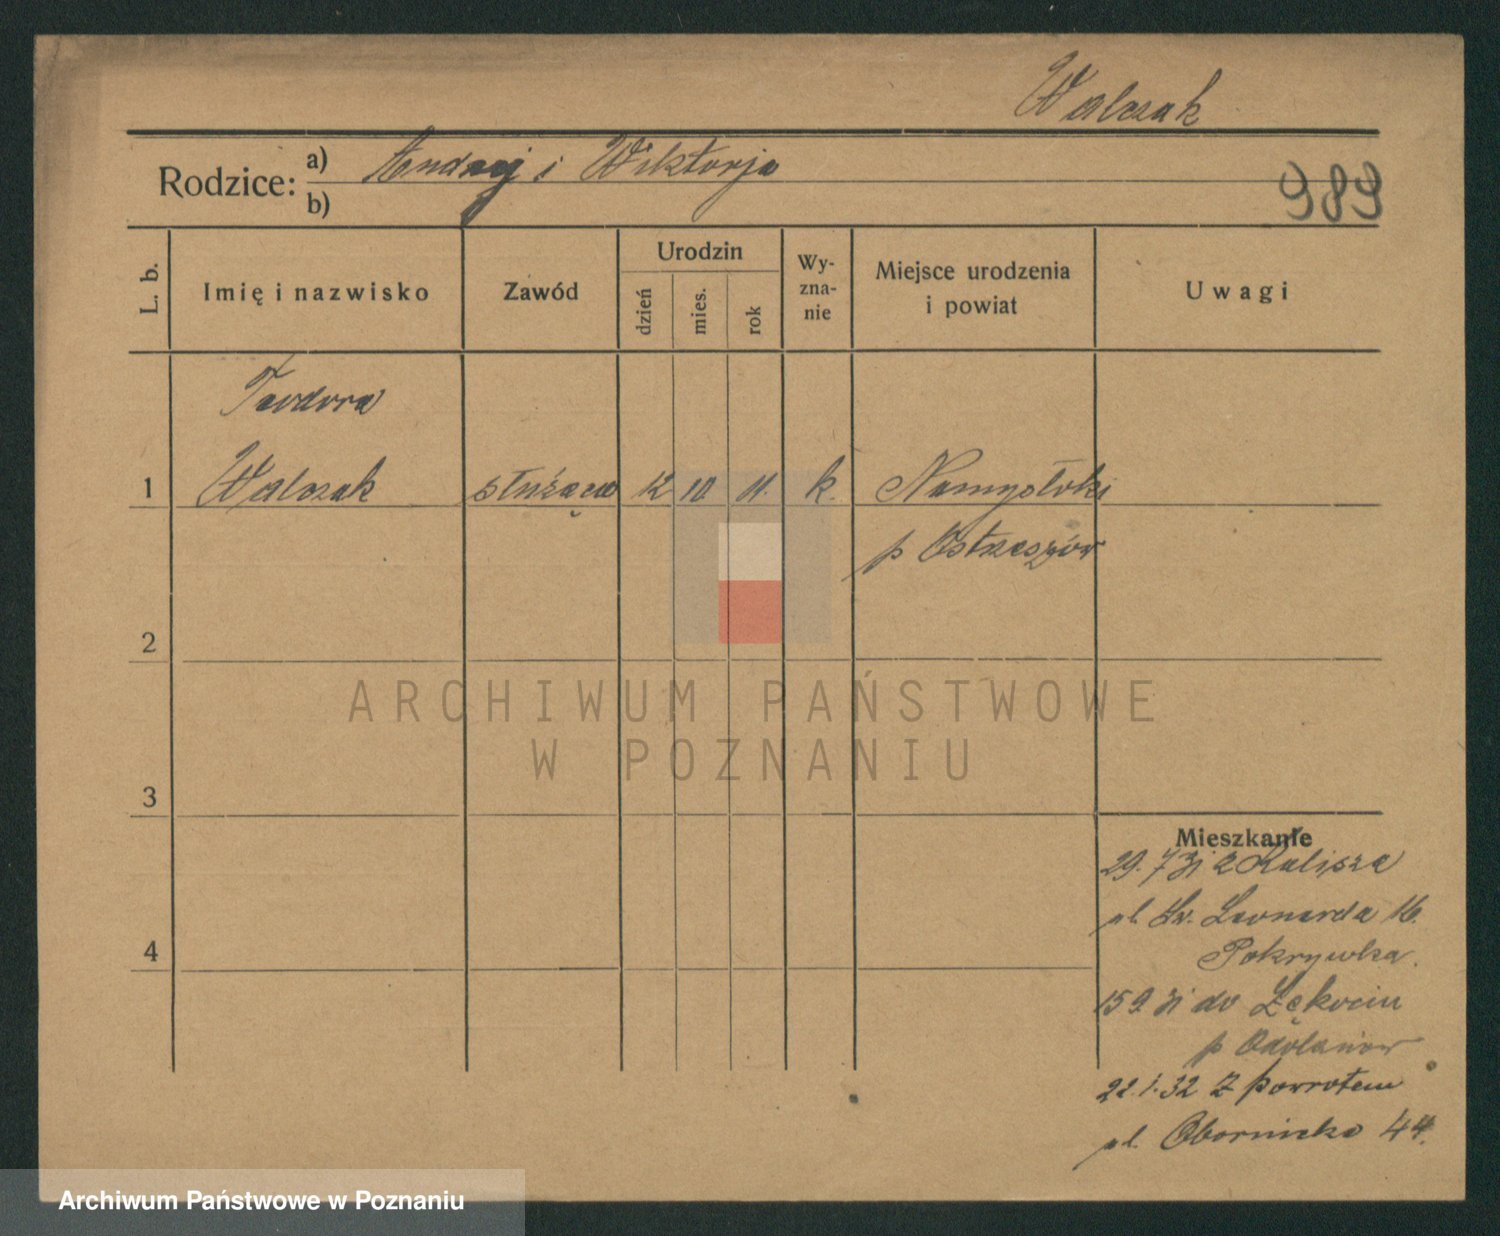 Walczak
Rodzice: a) Andrzej i Wiktorja
b)
989
L. b.
Imię i nazwisko
Zawód
Urodzin
dzień
mies.
rok
Wy-
zna-
nie
Miejsce urodzenia
i powiat
Uwagi
Teodora
1 Walczak służąca 12 10 11. k. Namysłaki
p Ostrzeszów
2
ARCHIWUM PAŃSTWOWE
W POZNANIU
3
Mieszkanie
29. 7 31 z Kalisza
ul. Św. Leonarda 16.
Pokrywka.
4
15 9. 31 do Łękocin
p Odolanów
22.1.32 z powrotem
ul. Obornicka 44.
Archiwum Państwowe w Poznaniu